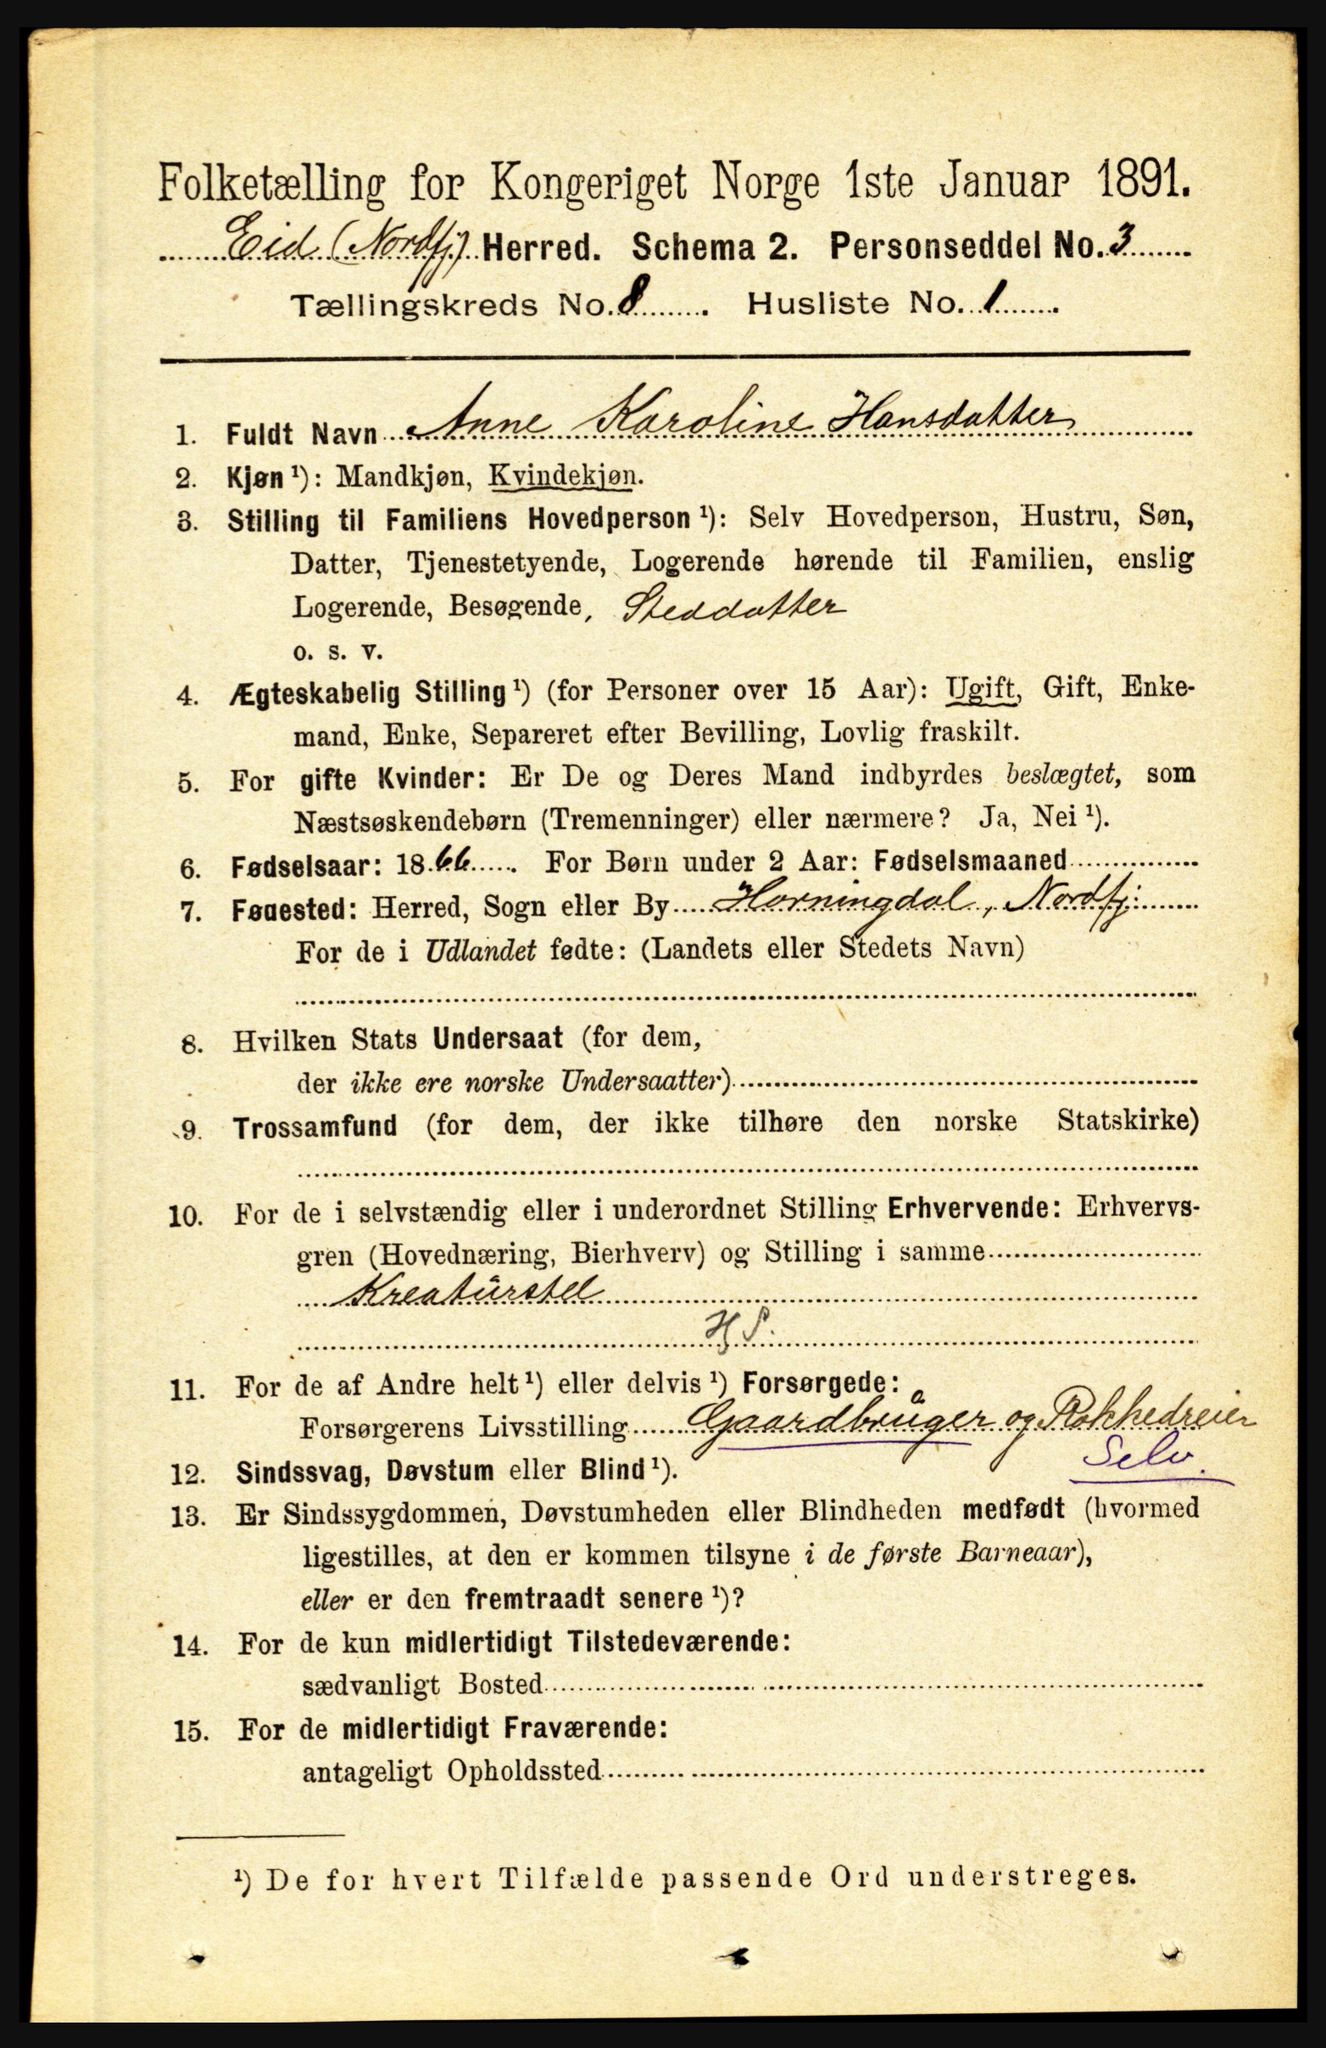 Folketælling for Kongeriget Norge 1ste Januar 1891.
Eid (Nordfj) Herred. Schema 2. Personseddel No. 3
Tællingskreds No. 8. Husliste No. 1.
1. Fuldt Navn Anne Karoline Hansdatter
2. Kjøn ¹): Mandkjøn, Kvindekjøn.
3. Stilling til Familiens Hovedperson ¹): Selv Hovedperson, Hustru, Søn,
Datter, Tjenestetyende, Logerende hørende til Familien, enslig
Logerende, Besøgende, Steddatter
o. s. v.
4. Ægteskabelig Stilling ¹) (for Personer over 15 Aar): Ugift, Gift, Enke-
mand, Enke, Separeret efter Bevilling, Lovlig fraskilt.
5. For gifte Kvinder: Er De og Deres Mand indbyrdes beslægtet, som
Næstsøskendebørn (Tremenninger) eller nærmere? Ja, Nei ¹).
6. Fødselsaar: 1866. For Børn under 2 Aar: Fødselsmaaned
7. Føuested: Herred, Sogn eller By Horningdal, Nordfj:
For de i Udlandet fødte: (Landets eller Stedets Navn)
8. Hvilken Stats Undersaat (for dem,
der ikke ere norske Undersaatter)
9. Trossamfund (for dem, der ikke tilhøre den norske Statskirke)
10. For de i selvstændig eller i underordnet Stilling Erhvervende: Erhvervs-
gren (Hovednæring, Bierhverv) og Stilling i samme
Kreaturstel
HS.
11. For de af Andre helt ¹) eller delvis ¹) Forsørgede:
Forsørgerens Livsstilling Gaardbruger og Rokkedreier
Selv.
12. Sindssvag, Døvstum eller Blind ¹).
13. Er Sindssygdommen, Døvstumheden eller Blindheden medfødt (hvormed
ligestilles, at den er kommen tilsyne i de første Barneaar),
eller er den fremtraadt senere ¹)?
14. For de kun midlertidigt Tilstedeværende:
sædvanligt Bosted
15. For de midlertidigt Fraværende:
antageligt Opholdssted
¹) De for hvert Tilfælde passende Ord understreges.